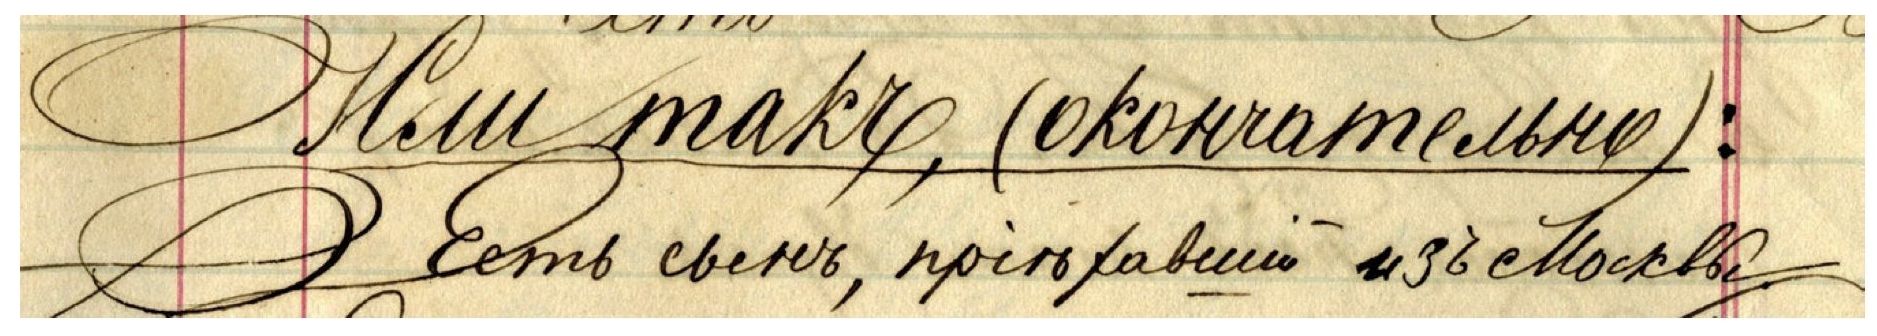 Или такъ, (окончательно):
Есть сынъ, пріѣхавшій изъ Москвы.